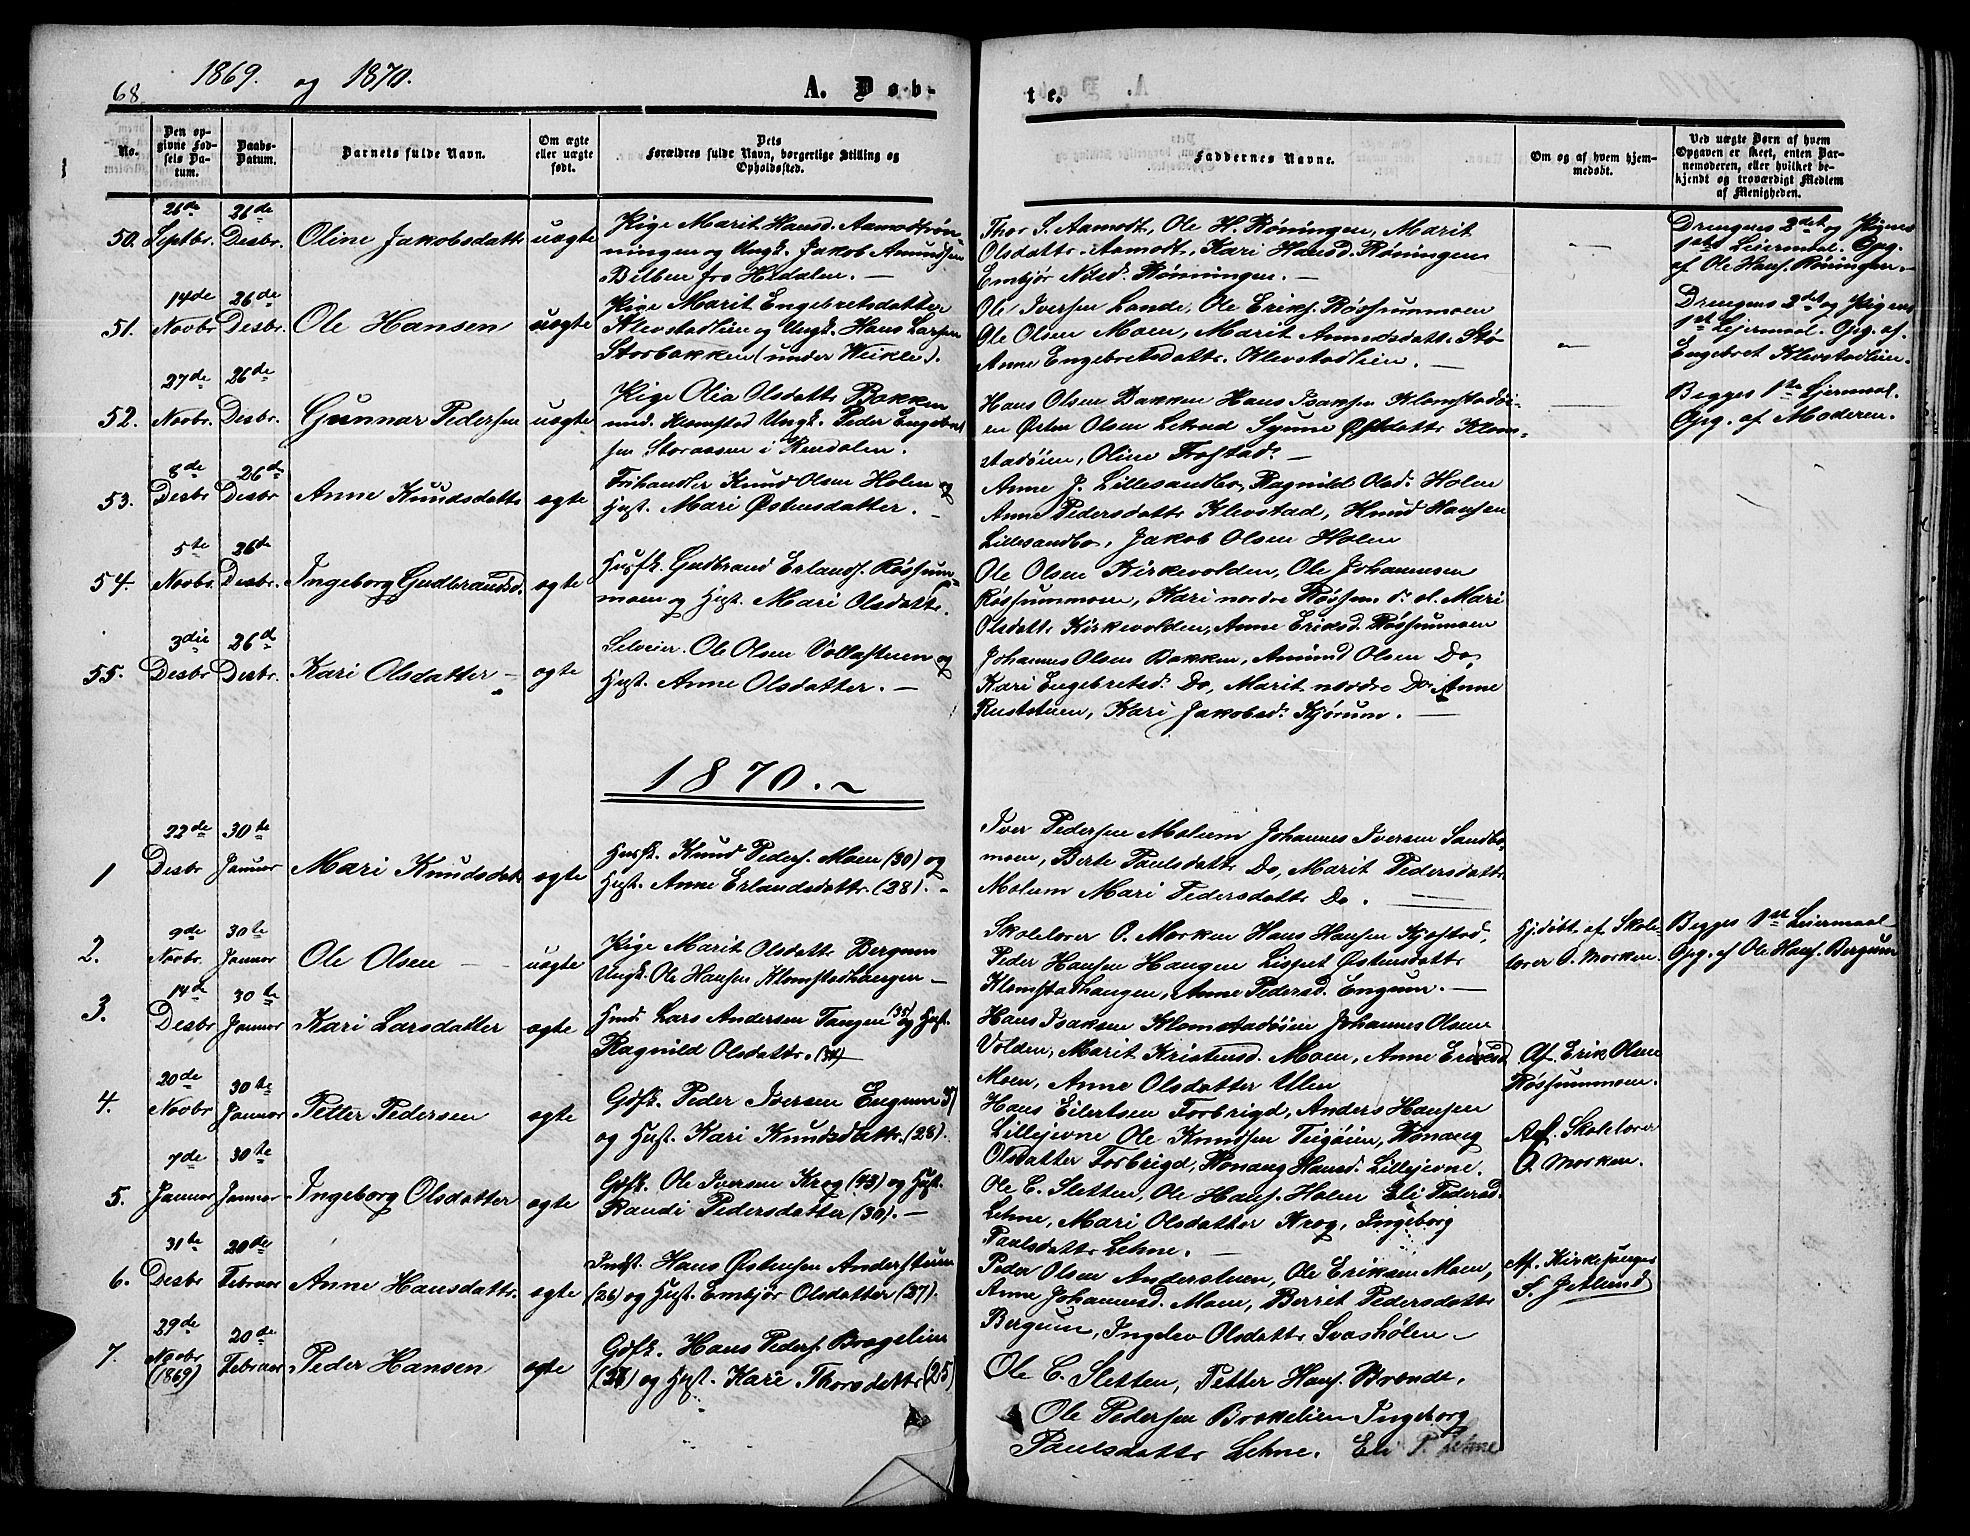 68. 1869. og 1870. A. Døb-
te.
No.
Den op-
givne Fød-
sels Da-
tum.
Daabs-
Datum.
Barnets fulde Navn.
Om ægte
eller uægte
født.
Dets
Forældres fulde Navn, borgerlige Stilling og
Opholdssted.
Faddernes Navne.
Om og af hvem hjem-
medøbt.
Ved uægte Børn af hvem
Opgaven er skeet, enten Bar-
nemoderen, eller hvilket be-
kjendt og troværdigt Medlem
af Menigheden.
50. 26de Septbr. 26de Desbr. Oline Jakobsdattr uægte
Pige Marit Hansd. Aamodtrøn-
ningen og Ungk. Jakob Amundsen
Bilben fra Hedalen. —
Thor S. Aamodt, Ole H. Røningen, Marit
Olsdattr Aamodt, Kari Hansd. Røningen
Embjør Nilsd. Rønningen. —
Drengens 2det og Pigens
1ste Leiermaal. Opg.
af Ole Hans. Røningen. —
51. 14de Novbr. 26de Desbr. Ole Hansen uægte
Pige Marit Engebretsdatter
Klevstadlien og Ungk. Hans Larsen
Storbakken (under Weikle).
Ole Iversen Lande, Ole Eriks. Røssummoen
Ole Olsen Moen, Marit Amundsdattr Stø
Anne Engebretsdattr. Klevstadlien. —
Drengens 2det og Pigens
1st Leiermaal. Opg. af
Engebret Klevstadlien.
52. 27de Novbr. 26de Desbr. Gunnar Pedersen uægte
Pige Olia Olsdattr Bakken
und. Klomstad Ungk. Peder Engebret
sen Storaasen i Rendalen.
Hans Olsen Bakken Hans Isaksen Klomstadøi-
en Østen Olsen Løkud Synne Østdattr Klom-
stadøien, Oline Frostad. —
Begges 1ste Leiermaal.
Opg. af Moderen.
53. 8de Desbr 26de Desbr Anne Knudsdattr ægte
Frihandler Knud Olsen Holen og
Hust. Mari Østensdatter. —
Anne J. Lillesandbo, Ragnild Olsd. Holen
Anne Pedersdattr Klevstad, Knud Hansen
Lillesandbo, Jakob Olsen Holen
54. 5te Novbr. 26de Desbr. Ingeborg Gudbrandsd. ægte
Husfk. Gudbrand Erlands. Røssum-
moen og Hust. Mari Olsdattr.
Ole Olsen Kirkevolden, Ole Johannesen
Røssummoen, Kari nordre Røssum d. æl. Mari
Olsdattr Kirkevolden, Anne Eriksd. Røssummoen
55. 3die Desbr 26d Desbr. Kari Olsdatter — ægte
Selveier. Ole Olsen Vollastuen og
Hust. Anne Olsdatter. —
Johannes Olsen Bakken, Amund Olsen Do,
Kari Engebretsd. Do, Marit nordre Do, Anne
Ruststuen, Kari Jakobsd. Kjørum. —
1870. ~
1 22de Desbr 30te Januar Mari Knudsdatt. ægte
Husfk. Knud Peders. Moen (30) og
Hust. Anne Erlandsdattr. (28). -
Iver Pedersen Molum Johannes Iversen Sandbo
moen, Berte Paulsdattr Do, Marit Pedersdattr
Molum Mari Pedersdattr Do. —
2. 9de Novbr. 30te Januar Ole Olsen — uægte
Pige Marit Olsdattr Bergum
Ungk. Ole Hansen Klomstadhaugen —
Skolelærer O. Morken Hans Hansen Kjøstad,
Peder Hansen Haugen Lispet Østensdattr
Klomstadhaugen, Anne Pedersd. Engum. —
Hjdøbt. af Skole-
lærer O. Morken.
Begges 1st Leiermaal
Opg. af Ole Hans. Bergum
3. 14de Desbr 30te Januar Kari Larsdatter ægte
Hmd. Lars Andersen Tangen (35) og Hust.
Ragnild Olsdattr. (34)
Hans Isaksen Klomstadøien Johannes Olsen
Volden, Marit Kristensd. Moen, Anne Eriksd
Moen, Anne Olsdatter Ulen
Af Erik Olsen
Røssummoen.
4. 20de Novbr 30te Januar Petter Pedersen ægte
Gdfk. Peder Iversen Engum 37
og Hust. Kari Knudsdattr. (28).
Hans Eilertsen Forbrigd, Anders Hansen
Lillejevne Ole Knudsen Teigøien, Ronaug
Olsdatter Forbrigd, Ronaug Hansd. Lillejevne.
Af. Skolelærer
O. Morken.
5. 7de Januar 30te Januar Ingeborg Olsdatter ægte
Gdfk. Ole Iversen Krog (43) og Hust.
Randi Pedersdatter (30). —
Ole C. Sletten, Ole Hans. Holen Eli Pedersd.
Lehne, Mari Olsdatter Krog, Ingeborg
Paulsdattr Lehne. —
6. 31te Desbr 20de Februar Anne Hansdattr. ægte
Indst. Hans Østensen Anderstuen
(26) og Hust. Embjør Olsdatter (27).
Peder Olsen Anderstuen, Ole Eriksen Moen,
Anne Johannesd. Moen, Berrit Pedersdattr
Bergum, Ingelev Olsdattr Svashølen —
Af. Kirkesanger
S. Jetlund
7. 29de Novbr (1869) 20de Februar Peder Hansen ægte
Gdfk. Hans Peders. Brækelien
(38) og Hust. Kari Thorsdattr (25)
Ole C. Sletten, Petter Hans. Brænde,
Ole Pedersen Brækelien Ingeborg
Paulsdattr Lehne. Eli P. Lehne